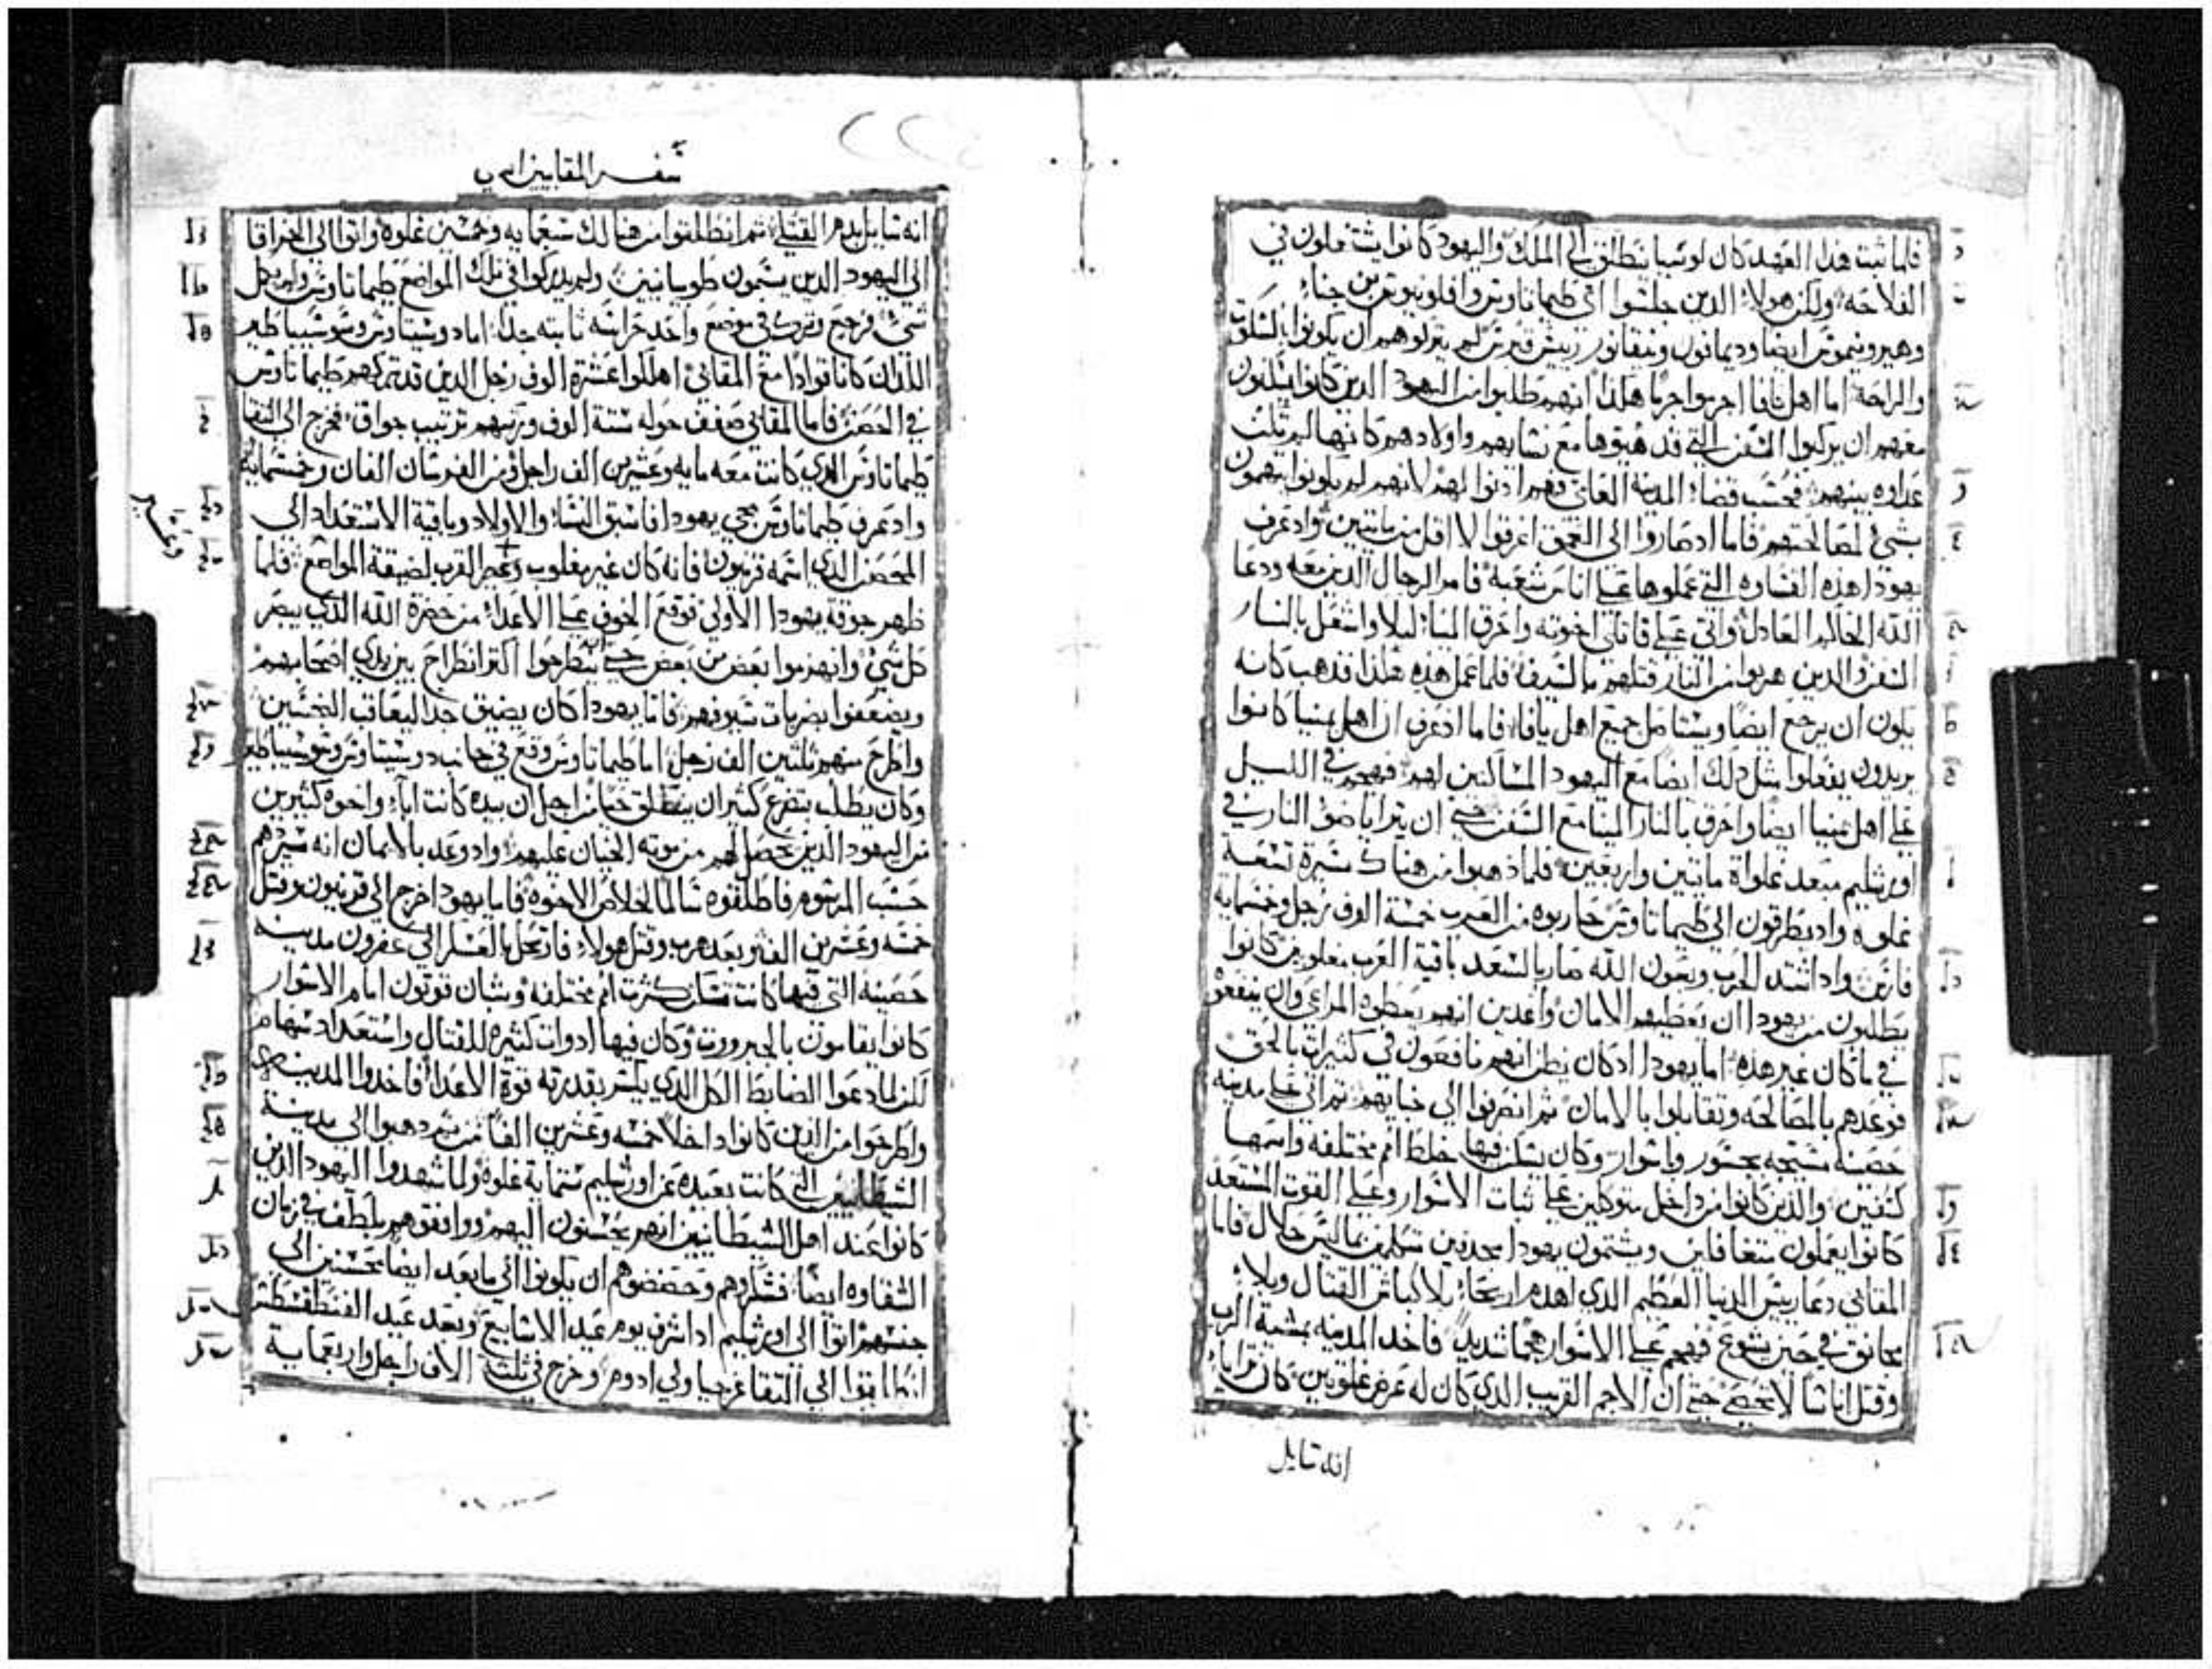 فلما ثبت هذا العهد كان لوسيا ينطلق الي الملك واليهود كانوا يشتغلون في
الفلاحه ولكن هولاء الذين جلسوا اي طيماتاوس وافلونيوس بن جناء
وهيرونيموس ايضا وديمافون ونيقانور رييس قبرس لم يتركوهم ان يكونوا بالسكوت
والراحة اما اهل يافا اجرموا جرما هكذا انهم طلبوا من اليهود الذين كانوا يسكنون
معهم ان يركبوا السفن التي قد هيوها مع نسايهم واولادهم كانها لم تكن
عداوه بينهم فحسب قضاء المدينه العاي فهم اذنوا لهم لانهم لم يكونوا يتهمون
بشي لمصالحتهم فاما اد صاروا الي العمق اغرقوا لا اقل من مايتين واد عرف
يهودا هذه القساوه التي عملوها علي اناس شعبه فامر الرجال الذين معه ودعا
الله الحاكم العادل واتي علي قاتلي اخوته واحرق المينا ليلا واشعل بالنار
السفن والذين هربوا من النار قتلهم بالسيف فلما عمل هذه هكذا فذهب كانه
يكون ان يرجع ايضا ويستاصل جميع اهل يافا فاما اذ عرف ان اهل يمنيا كانوا
يريدون يفعلوا مثل ذلك ايضا مع اليهود الساكنين لهم فهجم في الليل
علي اهل يمنيا ايضا واحرق بالنار المينا مع السفن حتي ان يترايا ضو النار في
اورشليم مبعد غلواة مايتين واربعين فلما ذهبوا من هناك مسيرة تسعة
غلوه واد يطرقون الي طيماتاوس حاربوه من العرب خمسة الوف رجل وخمسمايه
فارس واد اشتد الحرب وبعون الله صار بالسعد باقية العرب مغلوبين كانوا
يطلبون من يهودا ان يعطيهم الامان واعدين انهم يعطوه المراعي وان ينفعوه
في ما كان غير هذه اما يهودا اد كان يظن انهم نافعون في كثيرات بالحق
فوعدهم بالمصالحه وتقابلوا بالامان ثم انصرفوا الي خيايهم ثم اتي علي مدينه
حصينه مسيجه بجسور واسوار وكان يسكن فيها خلط امم مختلفه واسمها
كسفين والذين كانوا من داخل متوكلين علي ثبات الاسوار وعلي القوت المستعد
كانوا يعملون متغافلين ويشتمون يهودا مجدفين متكلمين ما ليس حلال فاما
المقابي دعا رييس الدنيا العظيم الذي اهدم اريحا بلا اكباش القتال وبلا
مجانق في حين يشوع فهجم علي الاسوار هجما شديدا فاخد المدينه بمشية الرب
وقتل اناسا لا تحصي حتي ان الاجم القريب الذي كان له عرض غلوتين كان تراياء
انه سايل
سفر المقابيين الثاني
انه سايل بدم القتلي ثم انطلقوا من هنالك سبعمايه وخمسين غلوه واتوا الي الخراقا
الي اليهود الذين يسمون طوبيانيين ولم يدركوا في تلك المواضع طيماتاوس ولم يكمل
شي فرجع وترك في موضع واحد حراسه ثابته جدا اما دوسيتاوس وسوسيباطير
اللذان كانا قوادا مع المقابي اهلكوا عشرة الوف رجل الذين قد تركهم طيماتاوس
في الحصن فاما المقابي صفف حوله ستة الوف ورتبهم ترتيب جواق فخرج الي التقا
طيماتاوس الذي كانت معه مايه وعشرين الف راجل ومن الفرسان الفان وخمسمايه
واد عرف طيماتاوس مجي يهودا فاسبق النساء والاولاد وباقية الاستعداد الي
المحصن الذي اسمه قرنيون فانه كان غير مغلوب وعسر القرب لضيقة المواضع فلما
وعسر
ظهر جوقة يهودا الاولي فوقع الخوف علي الاعداء من حضرة الله الذي يبصر
كل شي وانهزموا بعض من بعض حتي انهم ينطرحوا اكثر انطراح بين يدي اصحابهم
ويضعفوا بضربات سيوفهم فاما يهودا كان يضيق جدا ليعاقب النجسين
واطرح منهم ثلثين الف رجل اما طيماتاوس وقع في جانب دوسيتاوس وسوسيباطير
وكان يطلب بتضرع كثير ان ينطلق حيا من اجل ان بيده كانت اباء واخوه كثيرين
من اليهود الذين يحصل لهم من موته الخيبان عليهم واد وعد بالايمان انه سيردهم
حسب المرسوم فاطلقوه سالما لخلاص الاخوه فاما يهودا خرج الي قرنيون وقتل
خمسه وعشرين الف وبعد هرب وقتل هولاء فارتحل بالعسكر الي عفرون مدينه
حصينه التي فيها كانت تسكن كثرت امم مختلفه وشبان قوتون امام الاسوار
كانوا يقاتلون بالجبروت وكان فيها ادوات كثيره للقتال واستعداد سهام
لكن لما دعوا الضابط الكل الذي يكسر بقدرته قوة الاعداء فاخدوا المدينه
واطرحوا من الذين كانوا داخلا خمسه وعشرين الفا من ثم دهبوا الي مدينة
الشيطانيين التي كانت بعيده عن اورشليم ستماية غلوة ولما شهدوا اليهود الذين
كانوا عند اهل الشيطانيين انهم يحسنون اليهم ووافقوهم بلطف في زمان
الشقاوه ايضا فشكروهم وحضضوهم ان يكونوا الي ما بعد ايضا محسنين الي
جنسهم اتوا الي اورشليم اد اشرف يوم عيد الاسابيع وبعد عيد الفنطقسطس
انطلقوا الي التقا غرجيا والي ادوم وخرج في ثلثة الاف راجل واربعماية